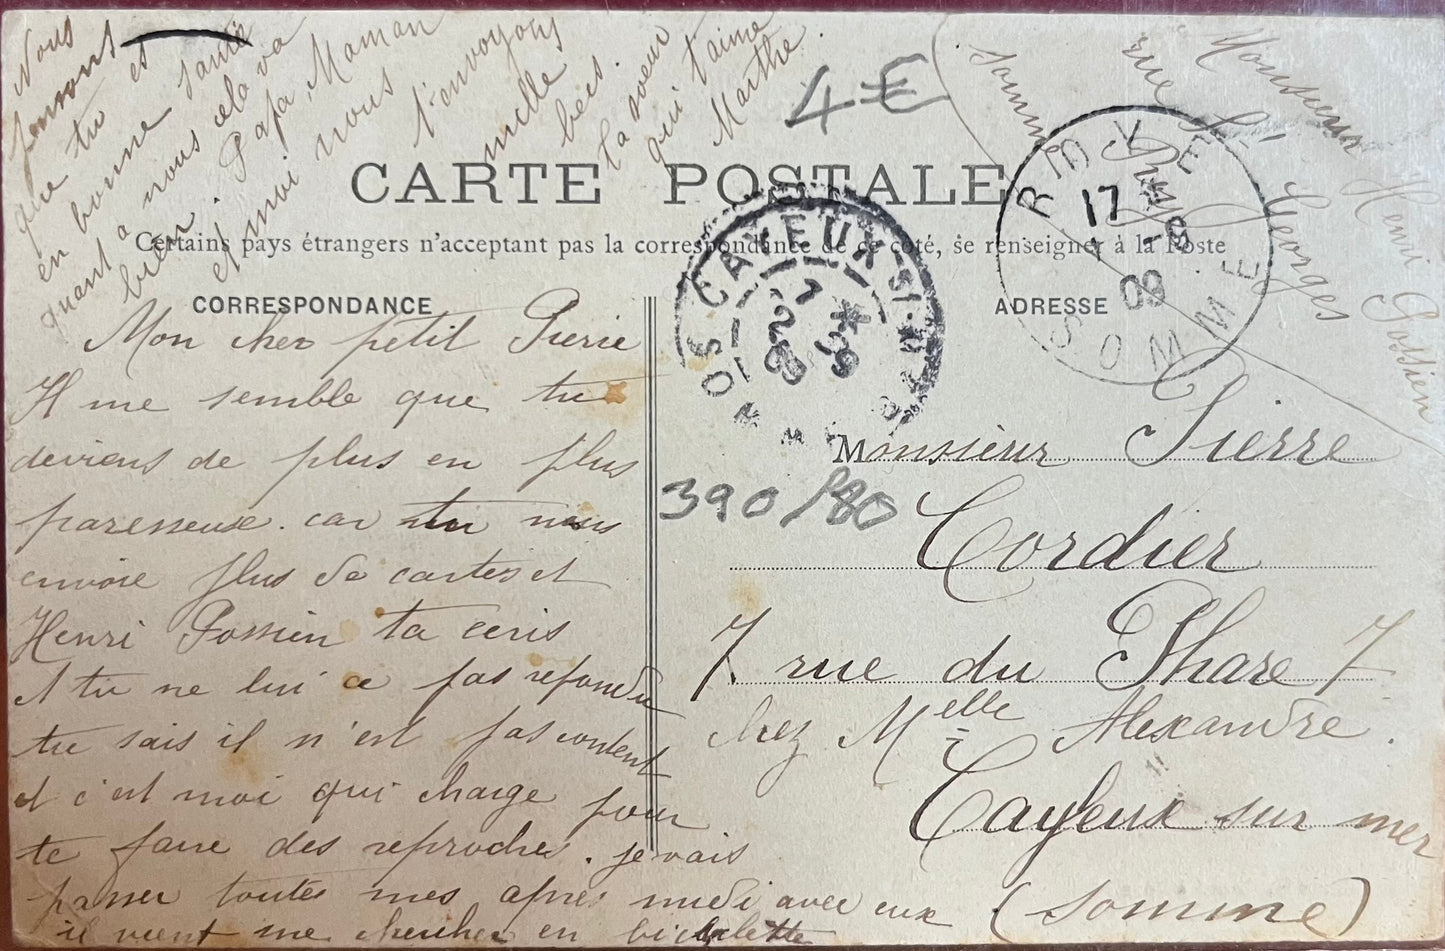 CARTE POSTALE
Certains pays étrangers n'acceptent pas la correspondance de ce côté, se renseigner à la Poste
CORRESPONDANCE
Mon cher petit Pierre
Il me semble que tu
deviens de plus en plus
paresseuse. car tu nous
envoie plus de cartes et
Henri Possien ta écris
et tu ne lui a pas repondu
tu sais il n'est pas content
et c'est moi qui charge pour
te faire des reproches. je vais
passer toutes mes apres midi avec eux
il vient me chercher en bicyclette
Nous
pensons
que tu es
en bonne santé
quant a nous cela va
bien. Papa, Maman
et moi nous t'envoyons
mille
bécs.
ta soeur
qui t'aime
Marthe.
4€
390/80
ADRESSE
Monsieur Pierre
Cordier
7 rue du Phare 7
chez Melle Alexandre.
Cayeux sur mer
(Somme)
Monsieur Henri Possien
rue St Georges
Somme
CAYEUX-S
RUE
17 -8
09
SOMME